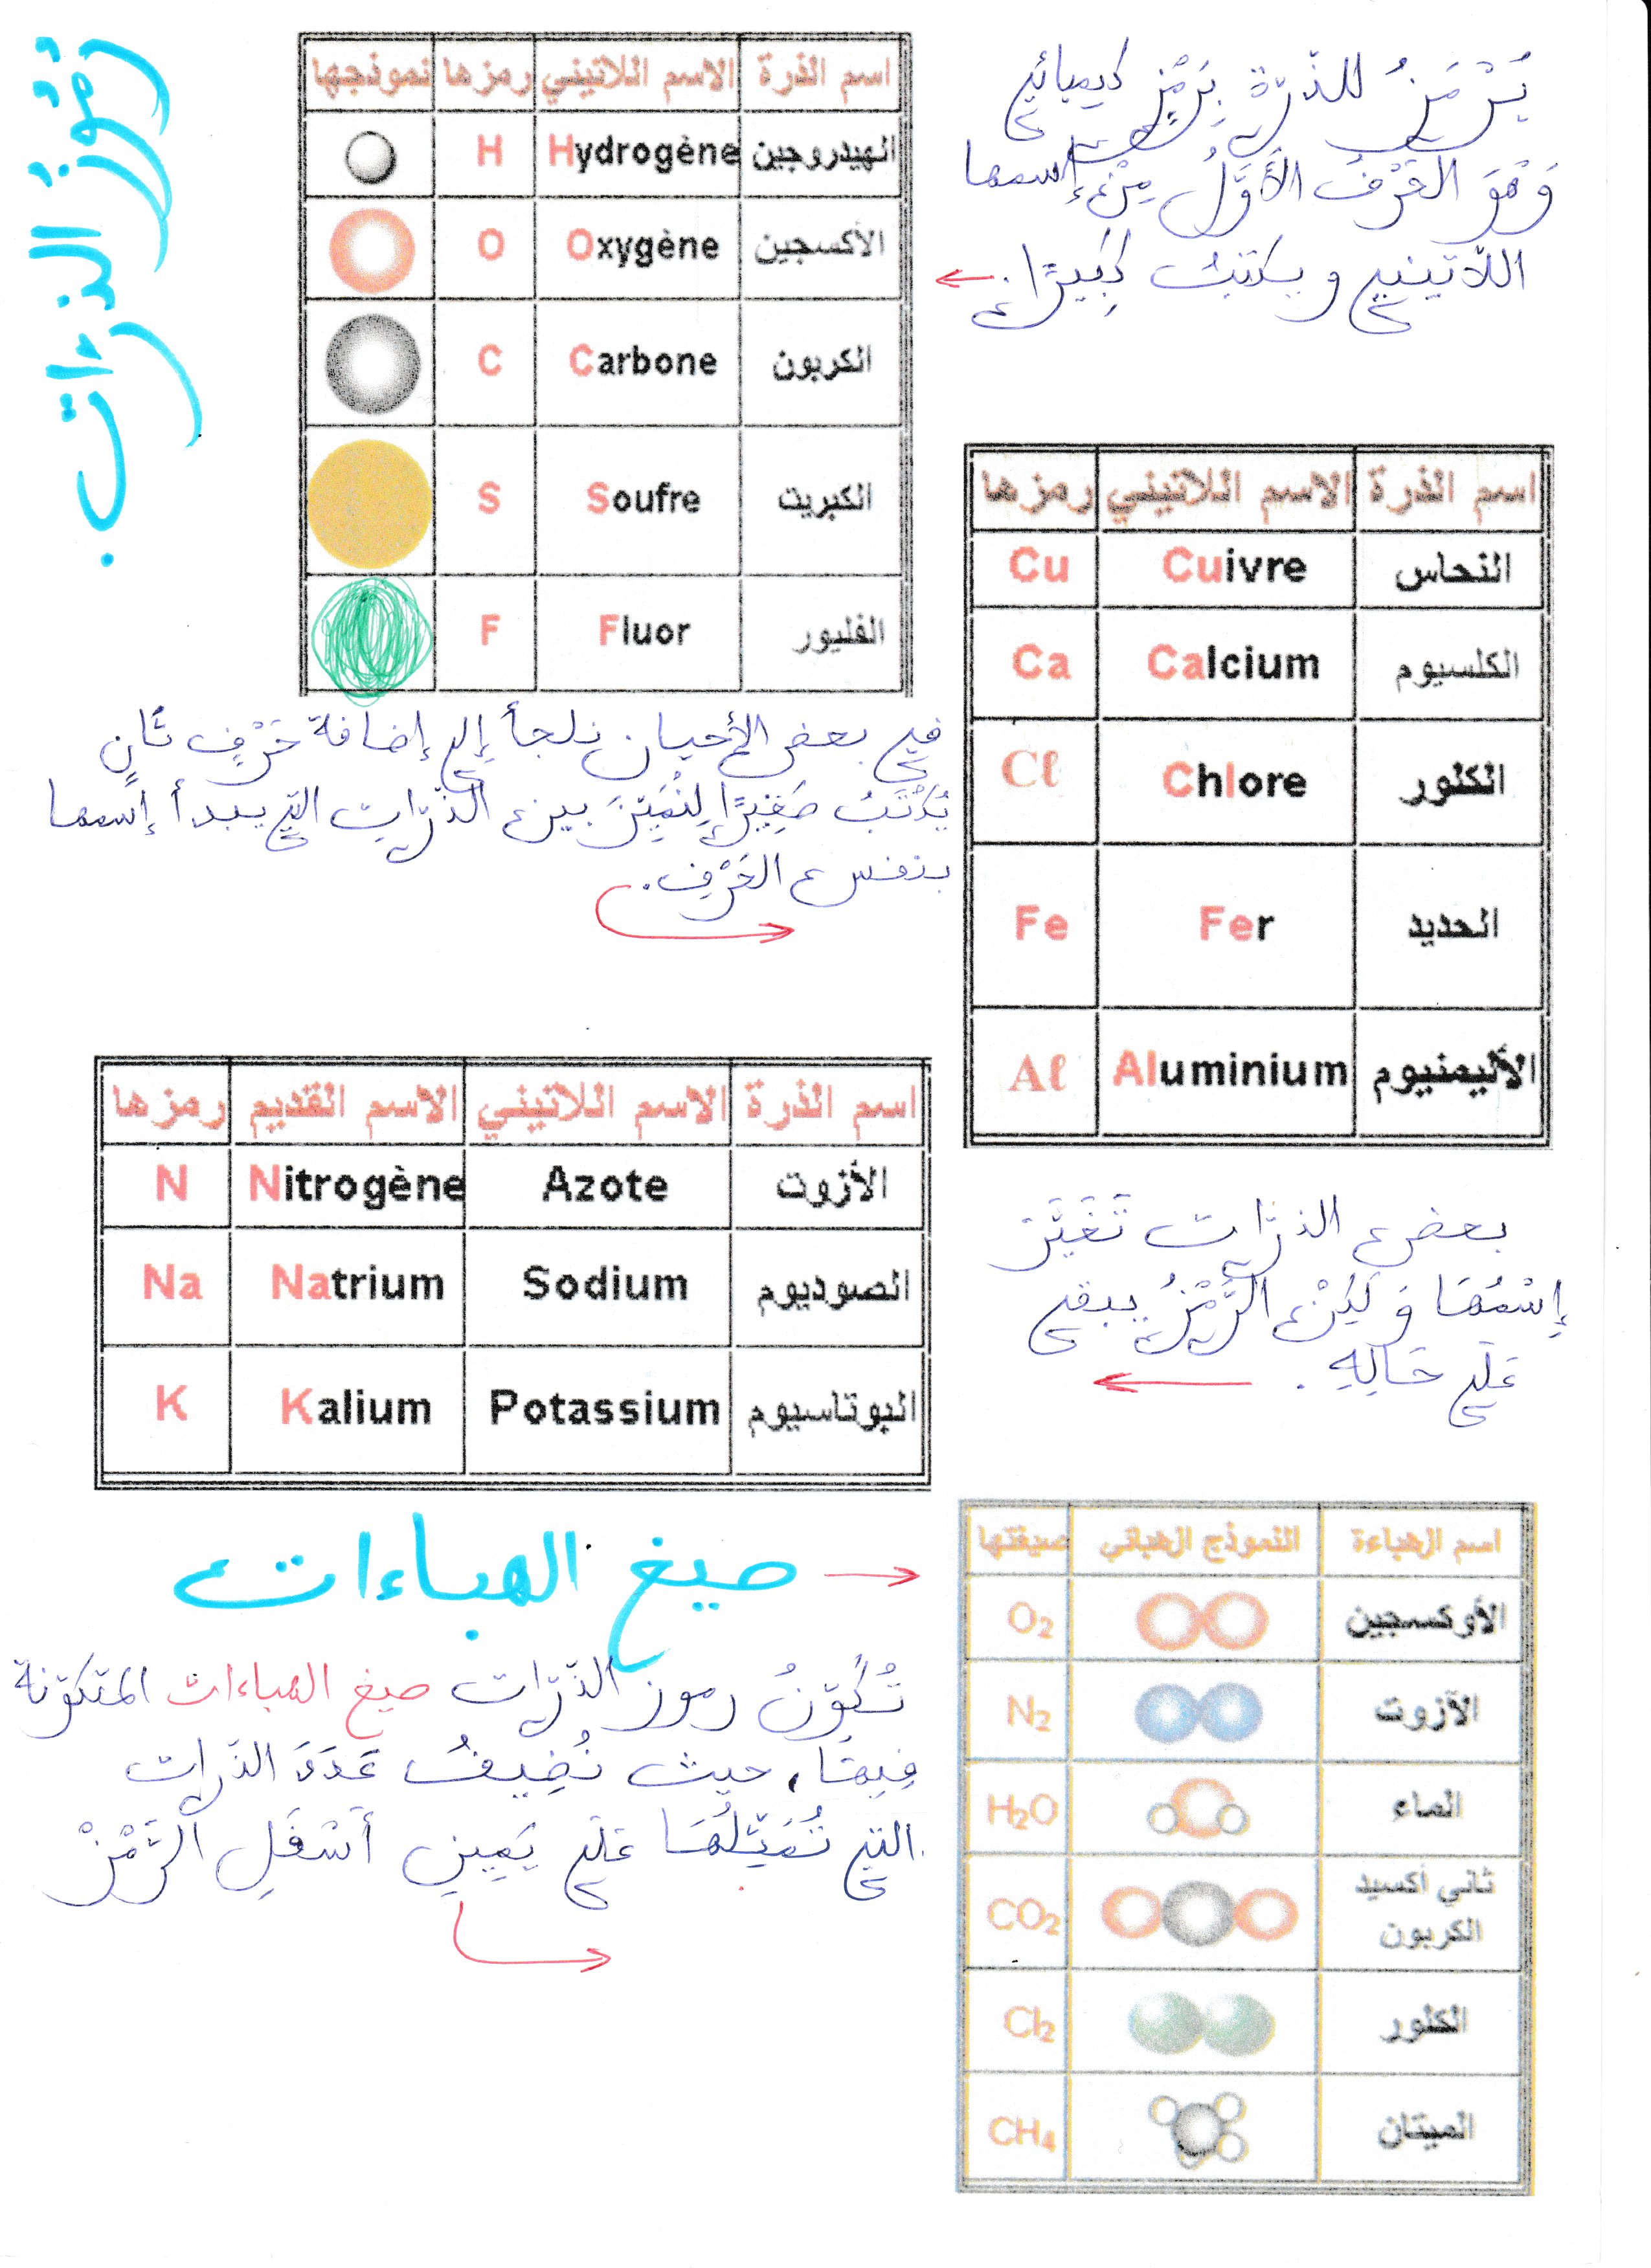 رُمُوزُ الذرات.
يُرْمَزُ للذّرّة بِرَمْزٍ كيميائي
وَهُوَ الحَرْفُ الأَوَّلُ مِنْ إسمها
اللّاتيني و يكتبُ كَبِيرًا.
اسم الذرة الاسم اللاتيني رمزها نموذجها
الهيدروجين Hydrogène H
الأكسجين Oxygène O
الكربون Carbone C
الكبريت Soufre S
الفليور Fluor F
في بعض الأحيان نلجأ إلى إضافة حَرْفٍ ثَانٍ
يُكْتَبُ صَغِيرًا لِنُمَيِّزَ بين الذّرّاتِ التي يبدأ إسمها
بنفس الحَرْفِ.
اسم الذرة الاسم اللاتيني رمزها
النحاس Cuivre Cu
الكلسيوم Calcium Ca
الكلور Chlore Cℓ
الحديد Fer Fe
الأليمنيوم Aluminium Aℓ
بعض الذرّات تَغَيَّرَ
إِسْمُهَا وَ لَكِنْ الرَّمْزُ يبقى
عَلَى حَالِهِ.
اسم الذرة الاسم اللاتيني الاسم القديم رمزها
الأزوت Azote Nitrogène N
الصوديوم Sodium Natrium Na
البوتاسيوم Potassium Kalium K
صيغ الهباءات
تُكَوِّنُ رموز الذّرّات صيغ الهباءات المتكوّنة
فِيهَا، حيث نُضِيفُ عَدَدَ الذّرات
التي تُمَثِّلُهَا عَلَى يَمِينِ أَسْفَلِ الرَّمْزْ
اسم الهباءة النموذج الهبائي صيغتها
الأوكسجين O₂
الآزوت N₂
الماء H₂O
ثاني أكسيد
الكربون CO₂
الكلور Cl₂
الميتان CH₄